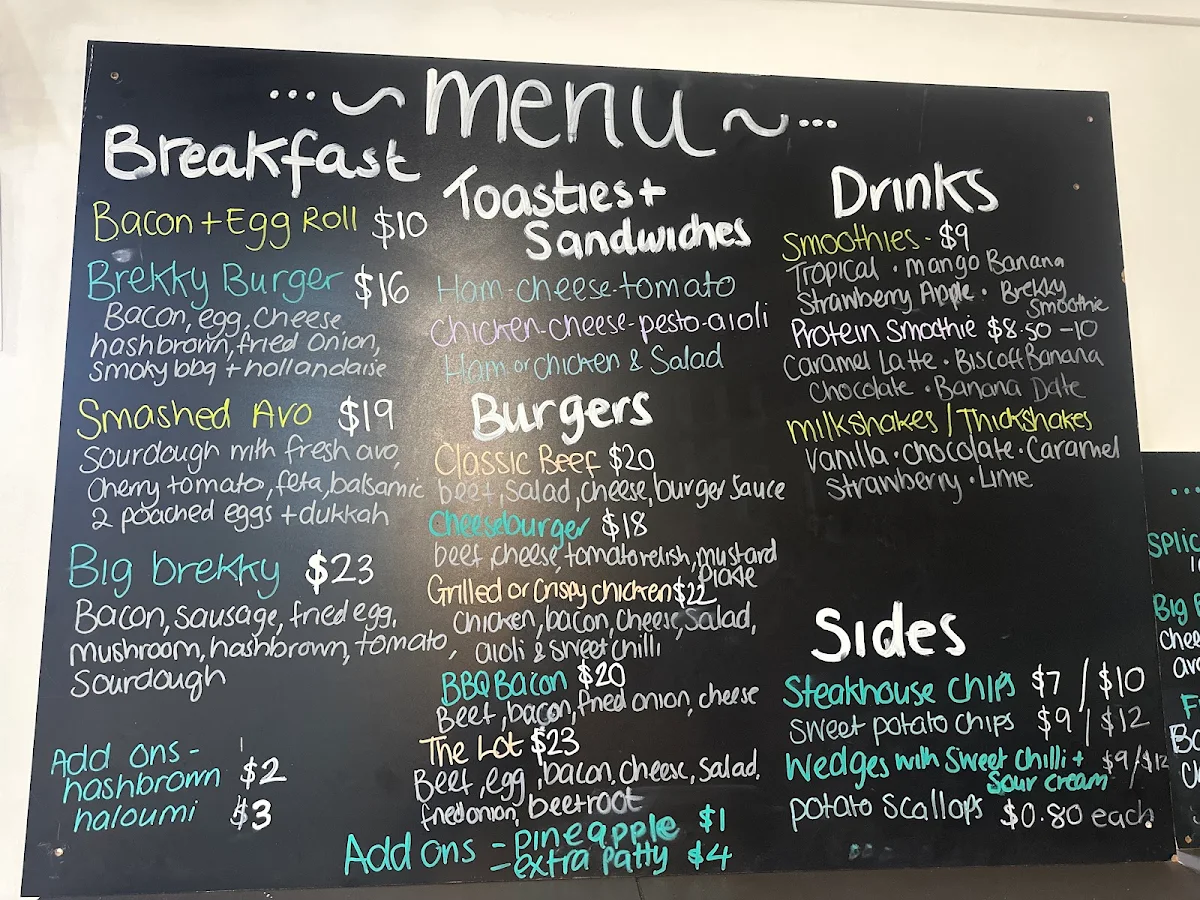 ... ~ menu ~ ...
Breakfast
Bacon + Egg Roll $10
Brekky Burger $16
Bacon, egg, cheese,
hashbrown, fried onion,
smoky bbq + hollandaise
Smashed Avo $19
Sourdough with fresh avo,
Cherry tomato, feta, balsamic
2 poached eggs + dukkah
Big brekky $23
Bacon, sausage, fried egg,
mushroom, hashbrown, tomato,
Sourdough
Add ons -
hashbrown $2
haloumi $3
Toasties +
Sandwiches
Ham-cheese-tomato
Chicken-cheese-pesto-aioli
Ham or chicken & Salad
Burgers
Classic Beef $20
beef, salad, cheese, burger sauce
Cheeseburger $18
beef, cheese, tomato relish, mustard
Pickle
Grilled or Crispy chicken $22
Chicken, bacon, cheese, salad,
aioli & sweet chilli
BBQ Bacon $20
Beef, bacon, fried onion, cheese
The Lot $23
Beef, egg, bacon, cheese, salad,
fried onion, beetroot
Add ons - pineapple $1
- extra patty $4
Drinks
Smoothies - $9
Tropical · mango Banana
Strawberry Apple · Brekky
Smoothie
Protein Smoothie $8.50 - 10
Caramel Latte · Biscoff Banana
Chocolate · Banana Date
Milkshakes / Thickshakes
Vanilla · chocolate · Caramel
Strawberry · Lime
Sides
Steakhouse chips $7 / $10
Sweet potato chips $9 / $12
Wedges with Sweet Chilli + $9/$12
Sour cream
potato scallops $0.80 each